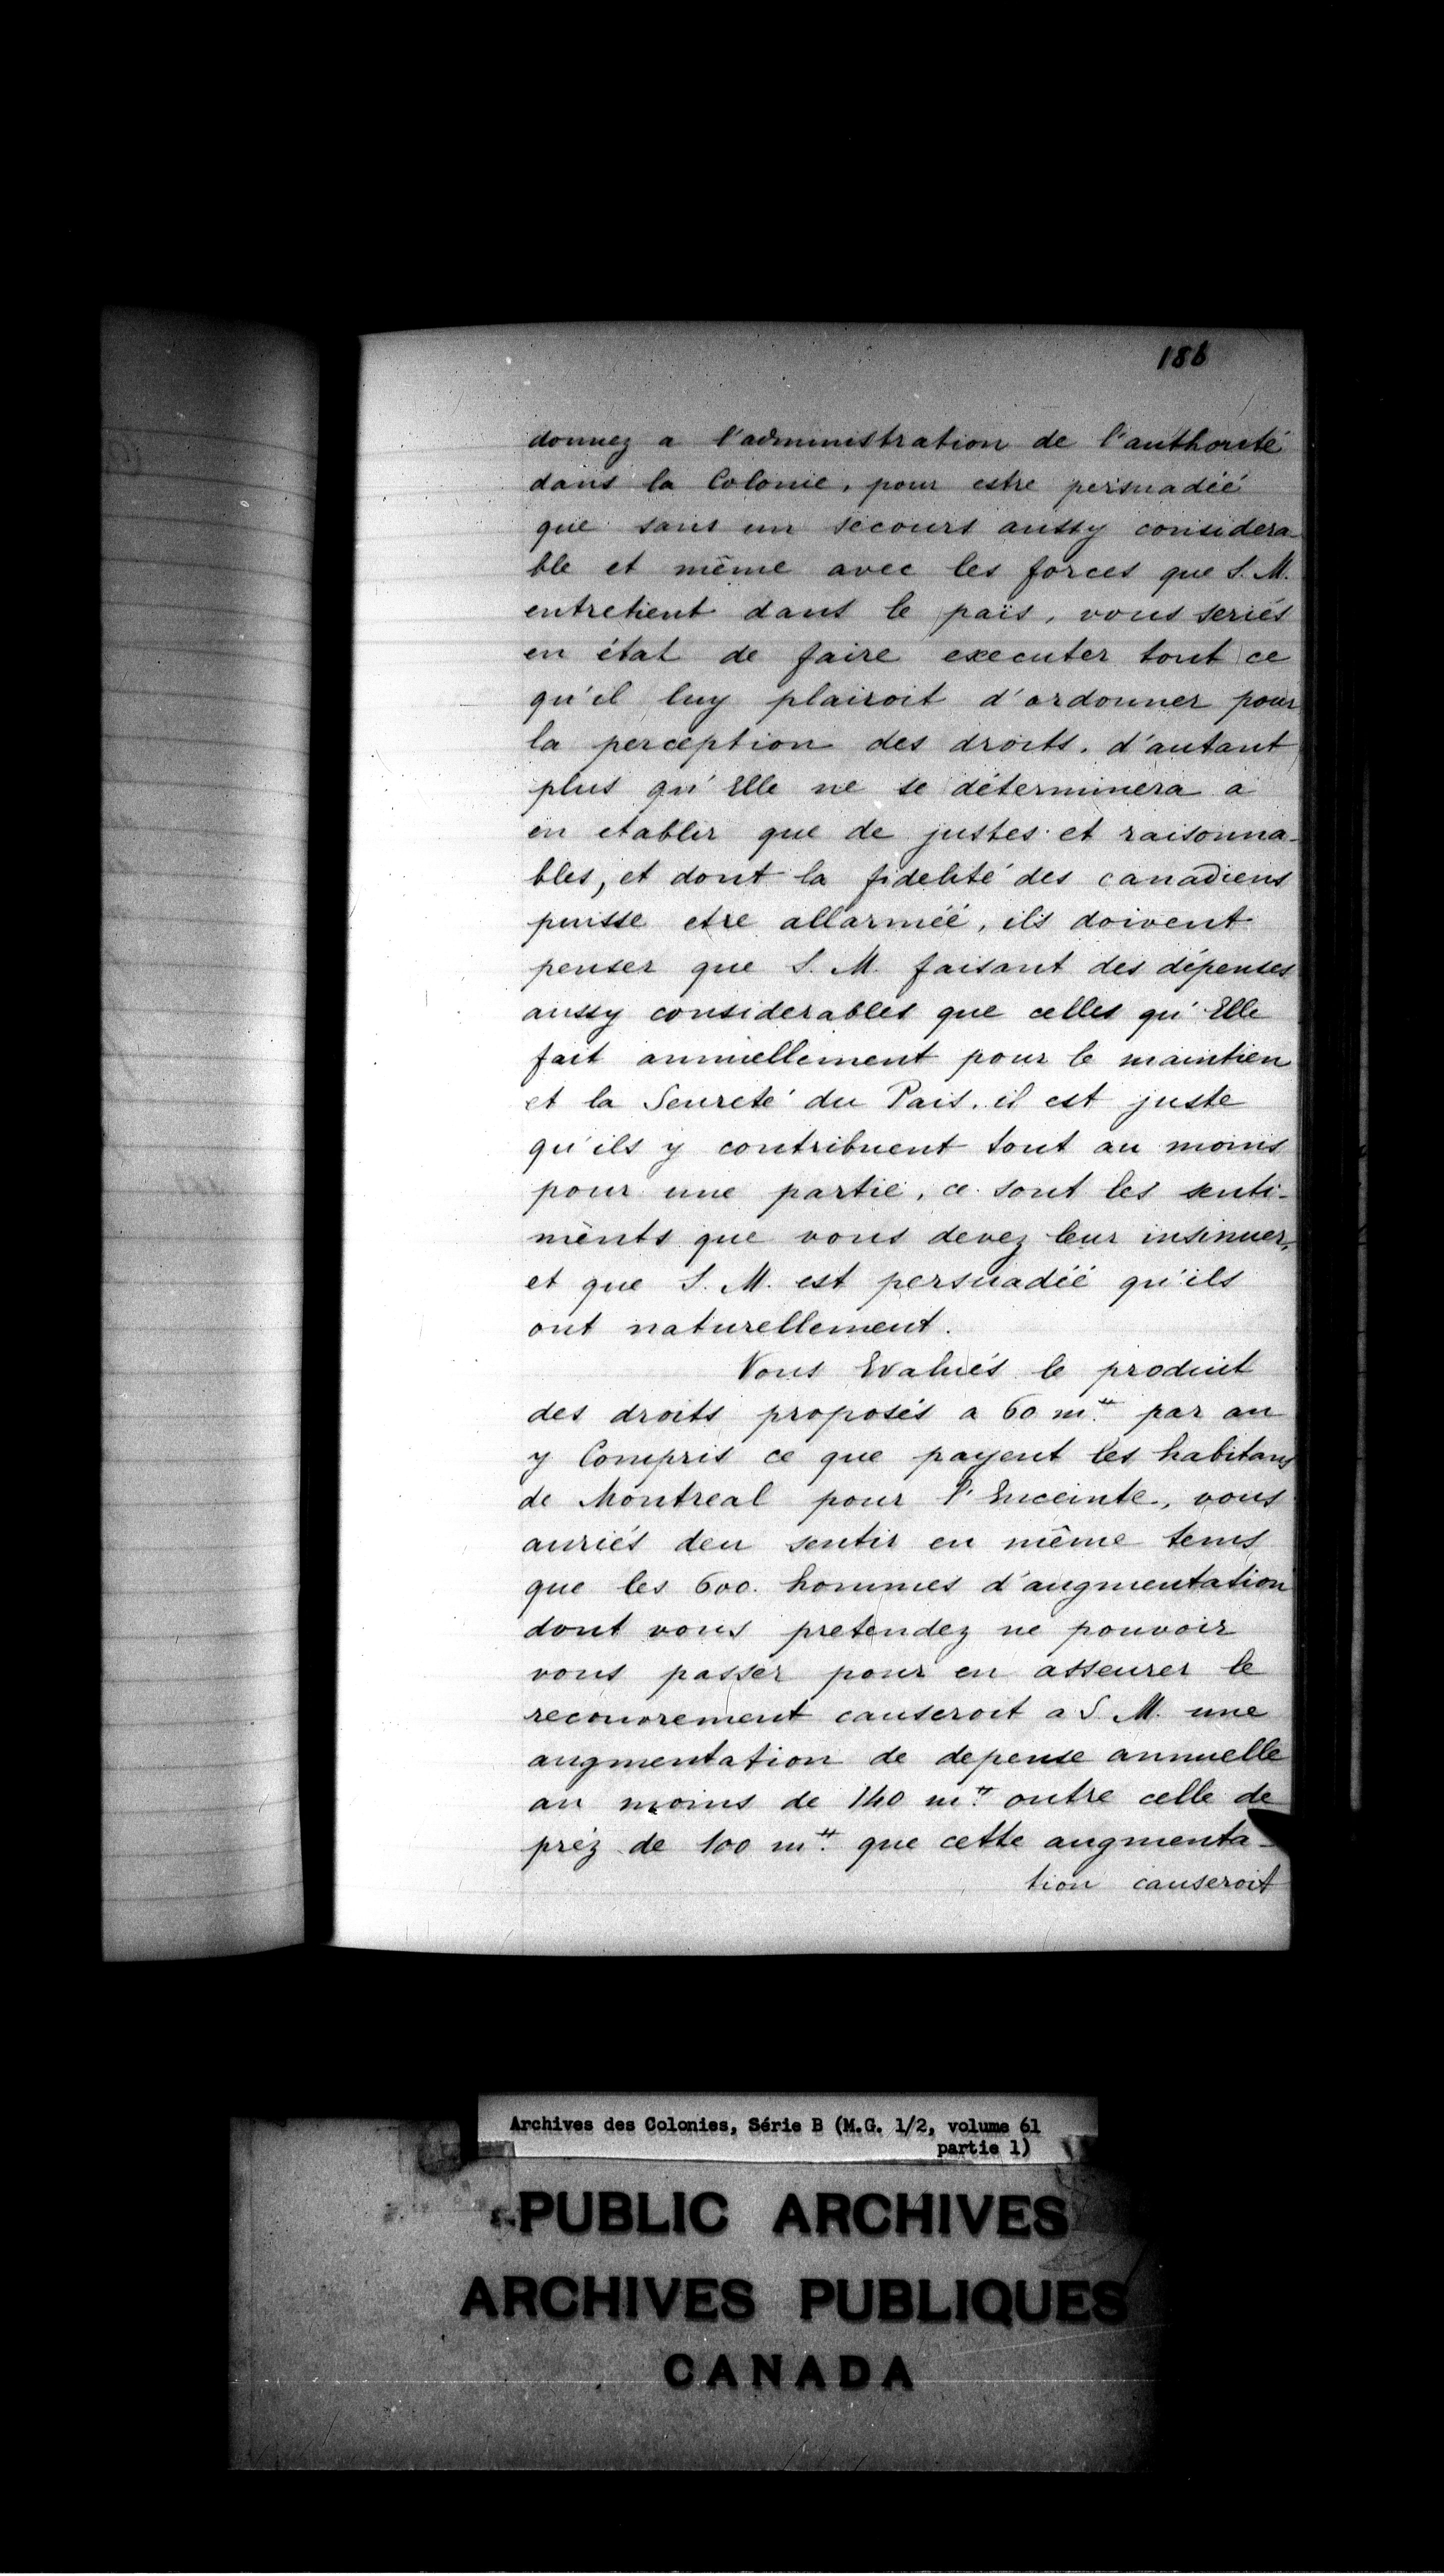 186
donnez a l'administration de l'authorité
dans la Colonie, pour estre persuadéé
que sans un secours aussy considera-
ble et même avec les forces que S. M.
entretient dans le païs, vous seriés
en état de faire executer tout ce
qu'il luy plairoit d'ordonner pour
la perception des droits, d'autant
plus qu'Elle ne se déterminera a
en etablir que de justes et raisonna-
bles, et dont la fidelité des canadiens
puisse etre allarméé, ils doivent
penser que S. M. faisant des dépenses
aussy considerables que celles qu'Elle
fait annuellement pour le maintien
et la Seureté du Pais, il est juste
qu'ils y contribuent tout au moins
pour une partie, ce sont les senti-
ments que vous devez leur insinuer,
et que S. M. est persuadéé qu'ils
ont naturellement.
Vous Evalués le produit
des droits proposés a 60 m.# par an
y Compris ce que payent les habitans
de Montreal pour l'Enceinte, vous
auriés deu sentir en même tems
que les 600. hommes d'augmentation
dont vous pretendez ne pouvoir
vous passer pour en asseurer le
recouvrement causeroit a S M. une
augmentation de depense annuelle
au moins de 140 m.# outre celle de
préz de 100 m.# que cette augmenta-
tion causeroit
Archives des Colonies, Série B (M.G. 1/2, volume 61
partie 1)
PUBLIC ARCHIVES
ARCHIVES PUBLIQUES
CANADA